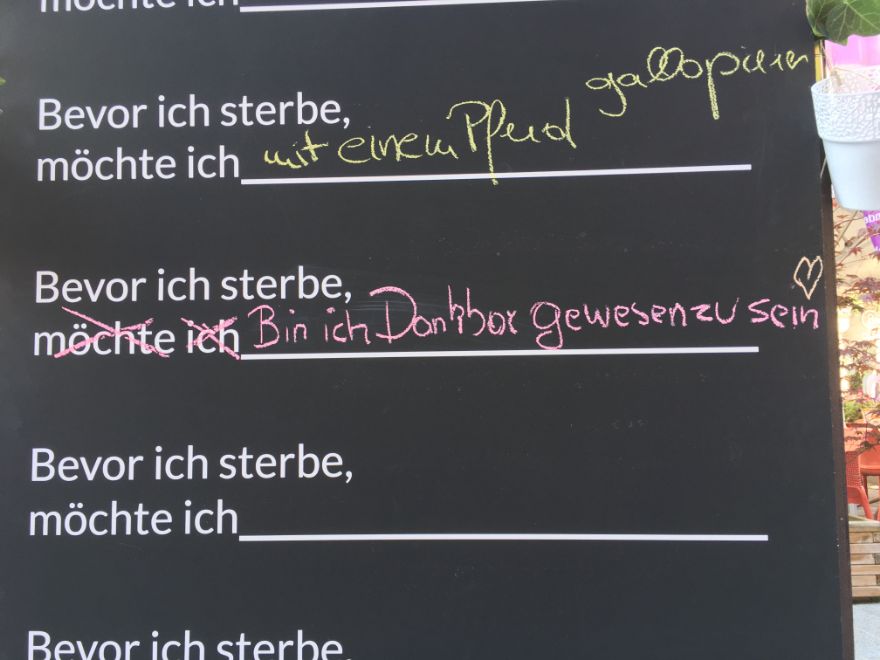 möchte ich
Bevor ich sterbe,
möchte ich mit einem Pferd gallopieren
Bevor ich sterbe,
möchte ich Bin ich Dankbar gewesen zu sein
Bevor ich sterbe,
möchte ich
Bevor ich sterbe,